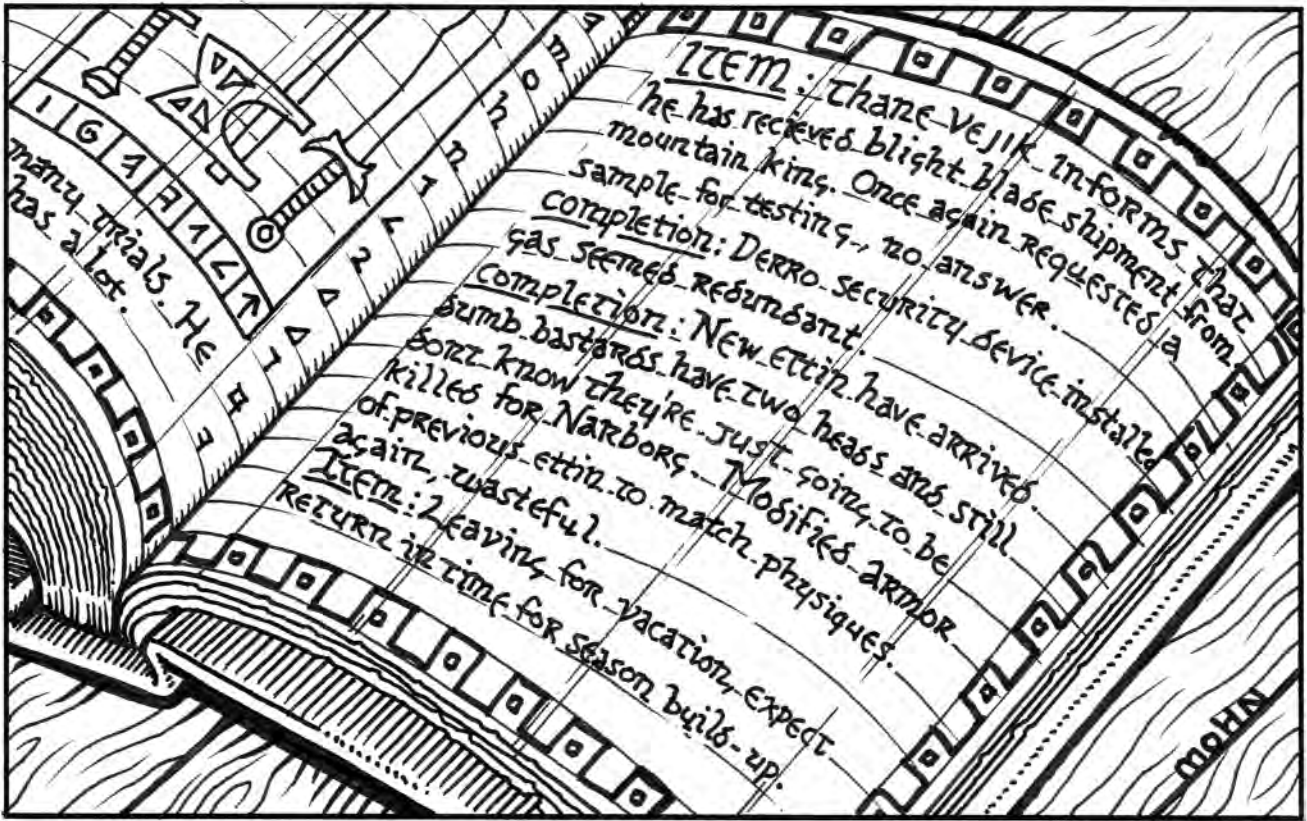 many trials. He
has a lot.
ITEM: Thane Vejik informs that
he has recieved blight blade shipment from
mountain king. Once again requested a
sample for testing, no answer.
completion: Derro security device installed
gas seemed redundant.
completion: New ettin have arrived.
dumb bastards have two heads and still
dont know they're just going to be
killed for Narborg. Modified armor
of previous ettin to match physiques.
again, wasteful.
Item: Leaving for vacation, expect
return in time for season build-up.